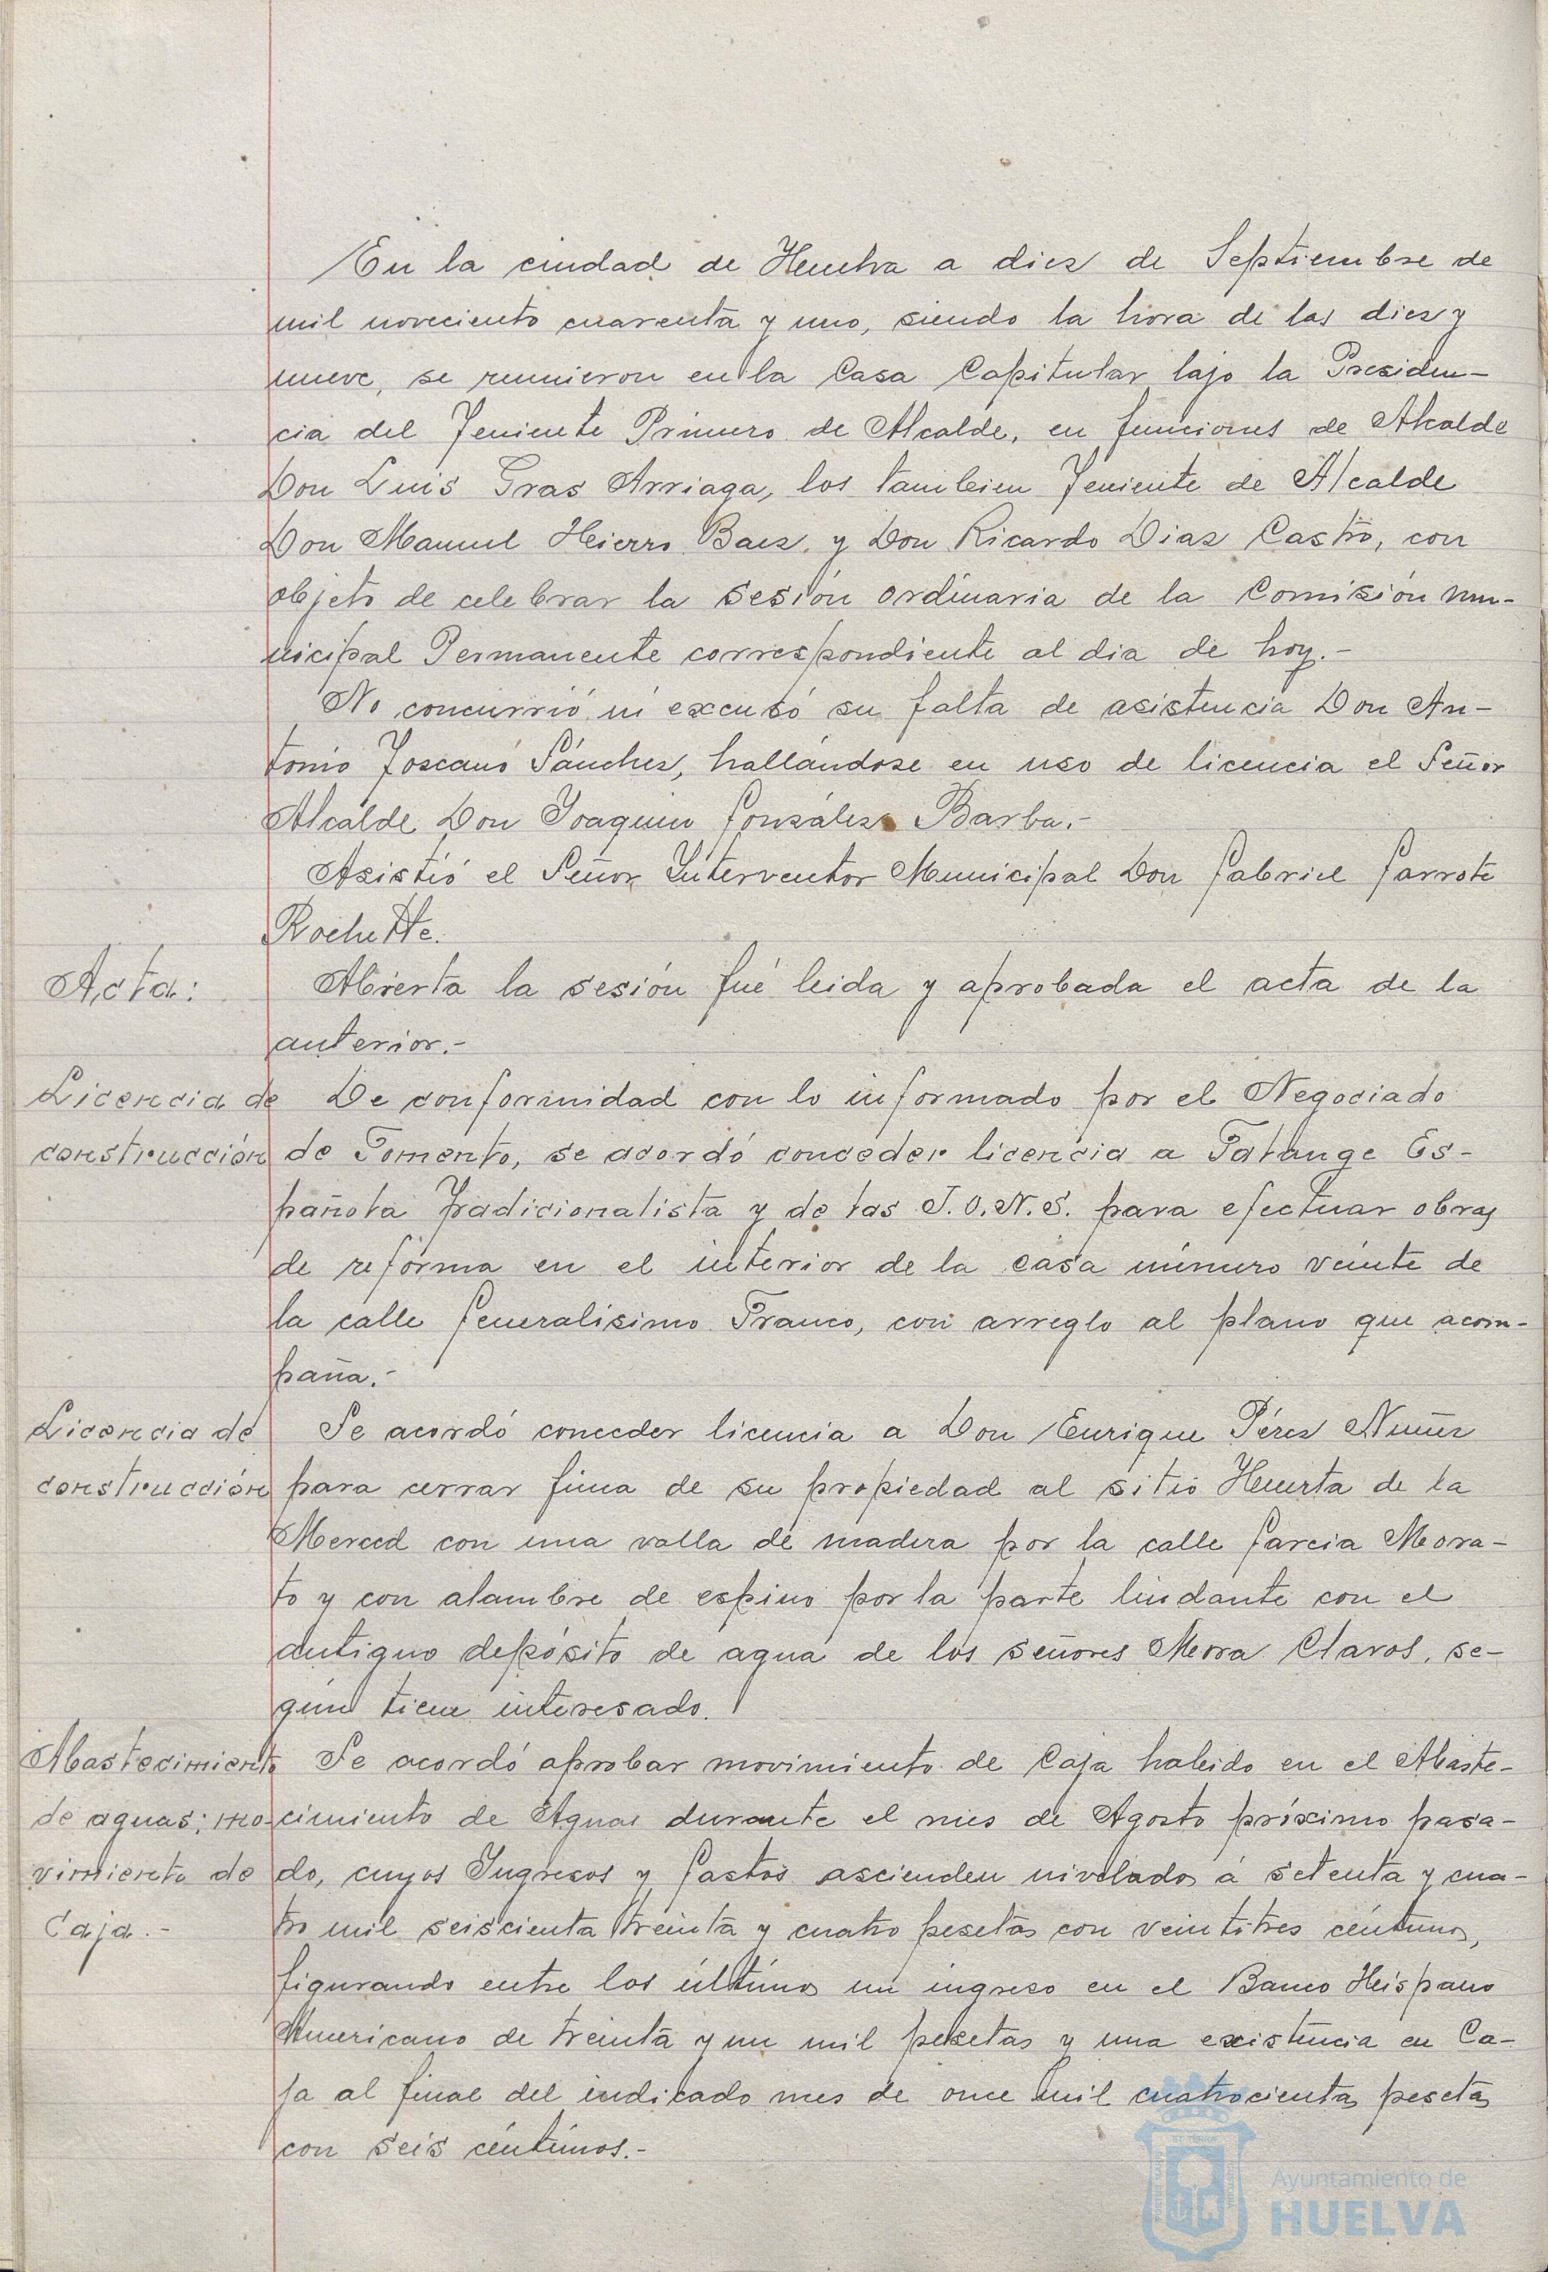 En la ciudad de Huelva a diez de Septiembre de
mil noveciento cuarenta y uno, siendo la hora de las diez y
nueve, se reunieron en la Casa Capitular bajo la Presiden-
cia del Teniente Primero de Alcalde, en funciones de Alcalde
Don Luis Gras Arriaga, los tambien Teniente de Alcalde
Don Manuel Hierro Baez y Don Ricardo Diaz Castro, con
objeto de celebrar la sesión ordinaria de la Comisión mu-
nicipal Permanente correspondiente al dia de hoy.-
No concurrió ni excusó su falta de asistencia Don An-
tonio Toscano Sánchez, hallándose en uso de licencia el Señor
Alcalde Don Joaquin González Barba.-
Asistió el Señor Interventor Municipal Don Gabriel Garrote
Rochette.
Acta:
Abierta la sesión fué leida y aprobada el acta de la
anterior.-
Licencia de
construcción
De conformidad con lo informado por el Negociado
de Fomento, se acordó conceder licencia a Falange Es-
pañola Tradicionalista y de las J.O.N.S. para efectuar obras
de reforma en el interior de la casa número veinte de
la calle Generalísimo Franco, con arreglo al plano que acom-
paña.-
Licencia de
construcción
Se acordó conceder licencia a Don Enrique Pérez Nuñez
para cerrar finca de su propiedad al sitio Huerta de la
Merced con una valla de madera por la calle Garcia Mora-
to y con alambre de espino por la parte lindante con el
antiguo depósito de agua de los señores Mora Claros, se-
gún tiene interesado.
Abastecimiento
de aguas; mo-
vimiento de
Caja.-
Se acordó aprobar movimiento de Caja habido en el Abaste-
cimiento de Aguas durante el mes de Agosto próximo pasa-
do, cuyos Ingresos y Gastos ascienden nivelados á setenta y cua-
tro mil seiscienta treinta y cuatro pesetas con veintitres céntimos,
figurando entre los últimos un ingreso en el Banco Hispano
Americano de treinta y un mil pesetas y una existencia en Ca-
ja al final del indicado mes de once mil cuatrocientas pesetas
con seis céntimos.-
Ayuntamiento de
HUELVA